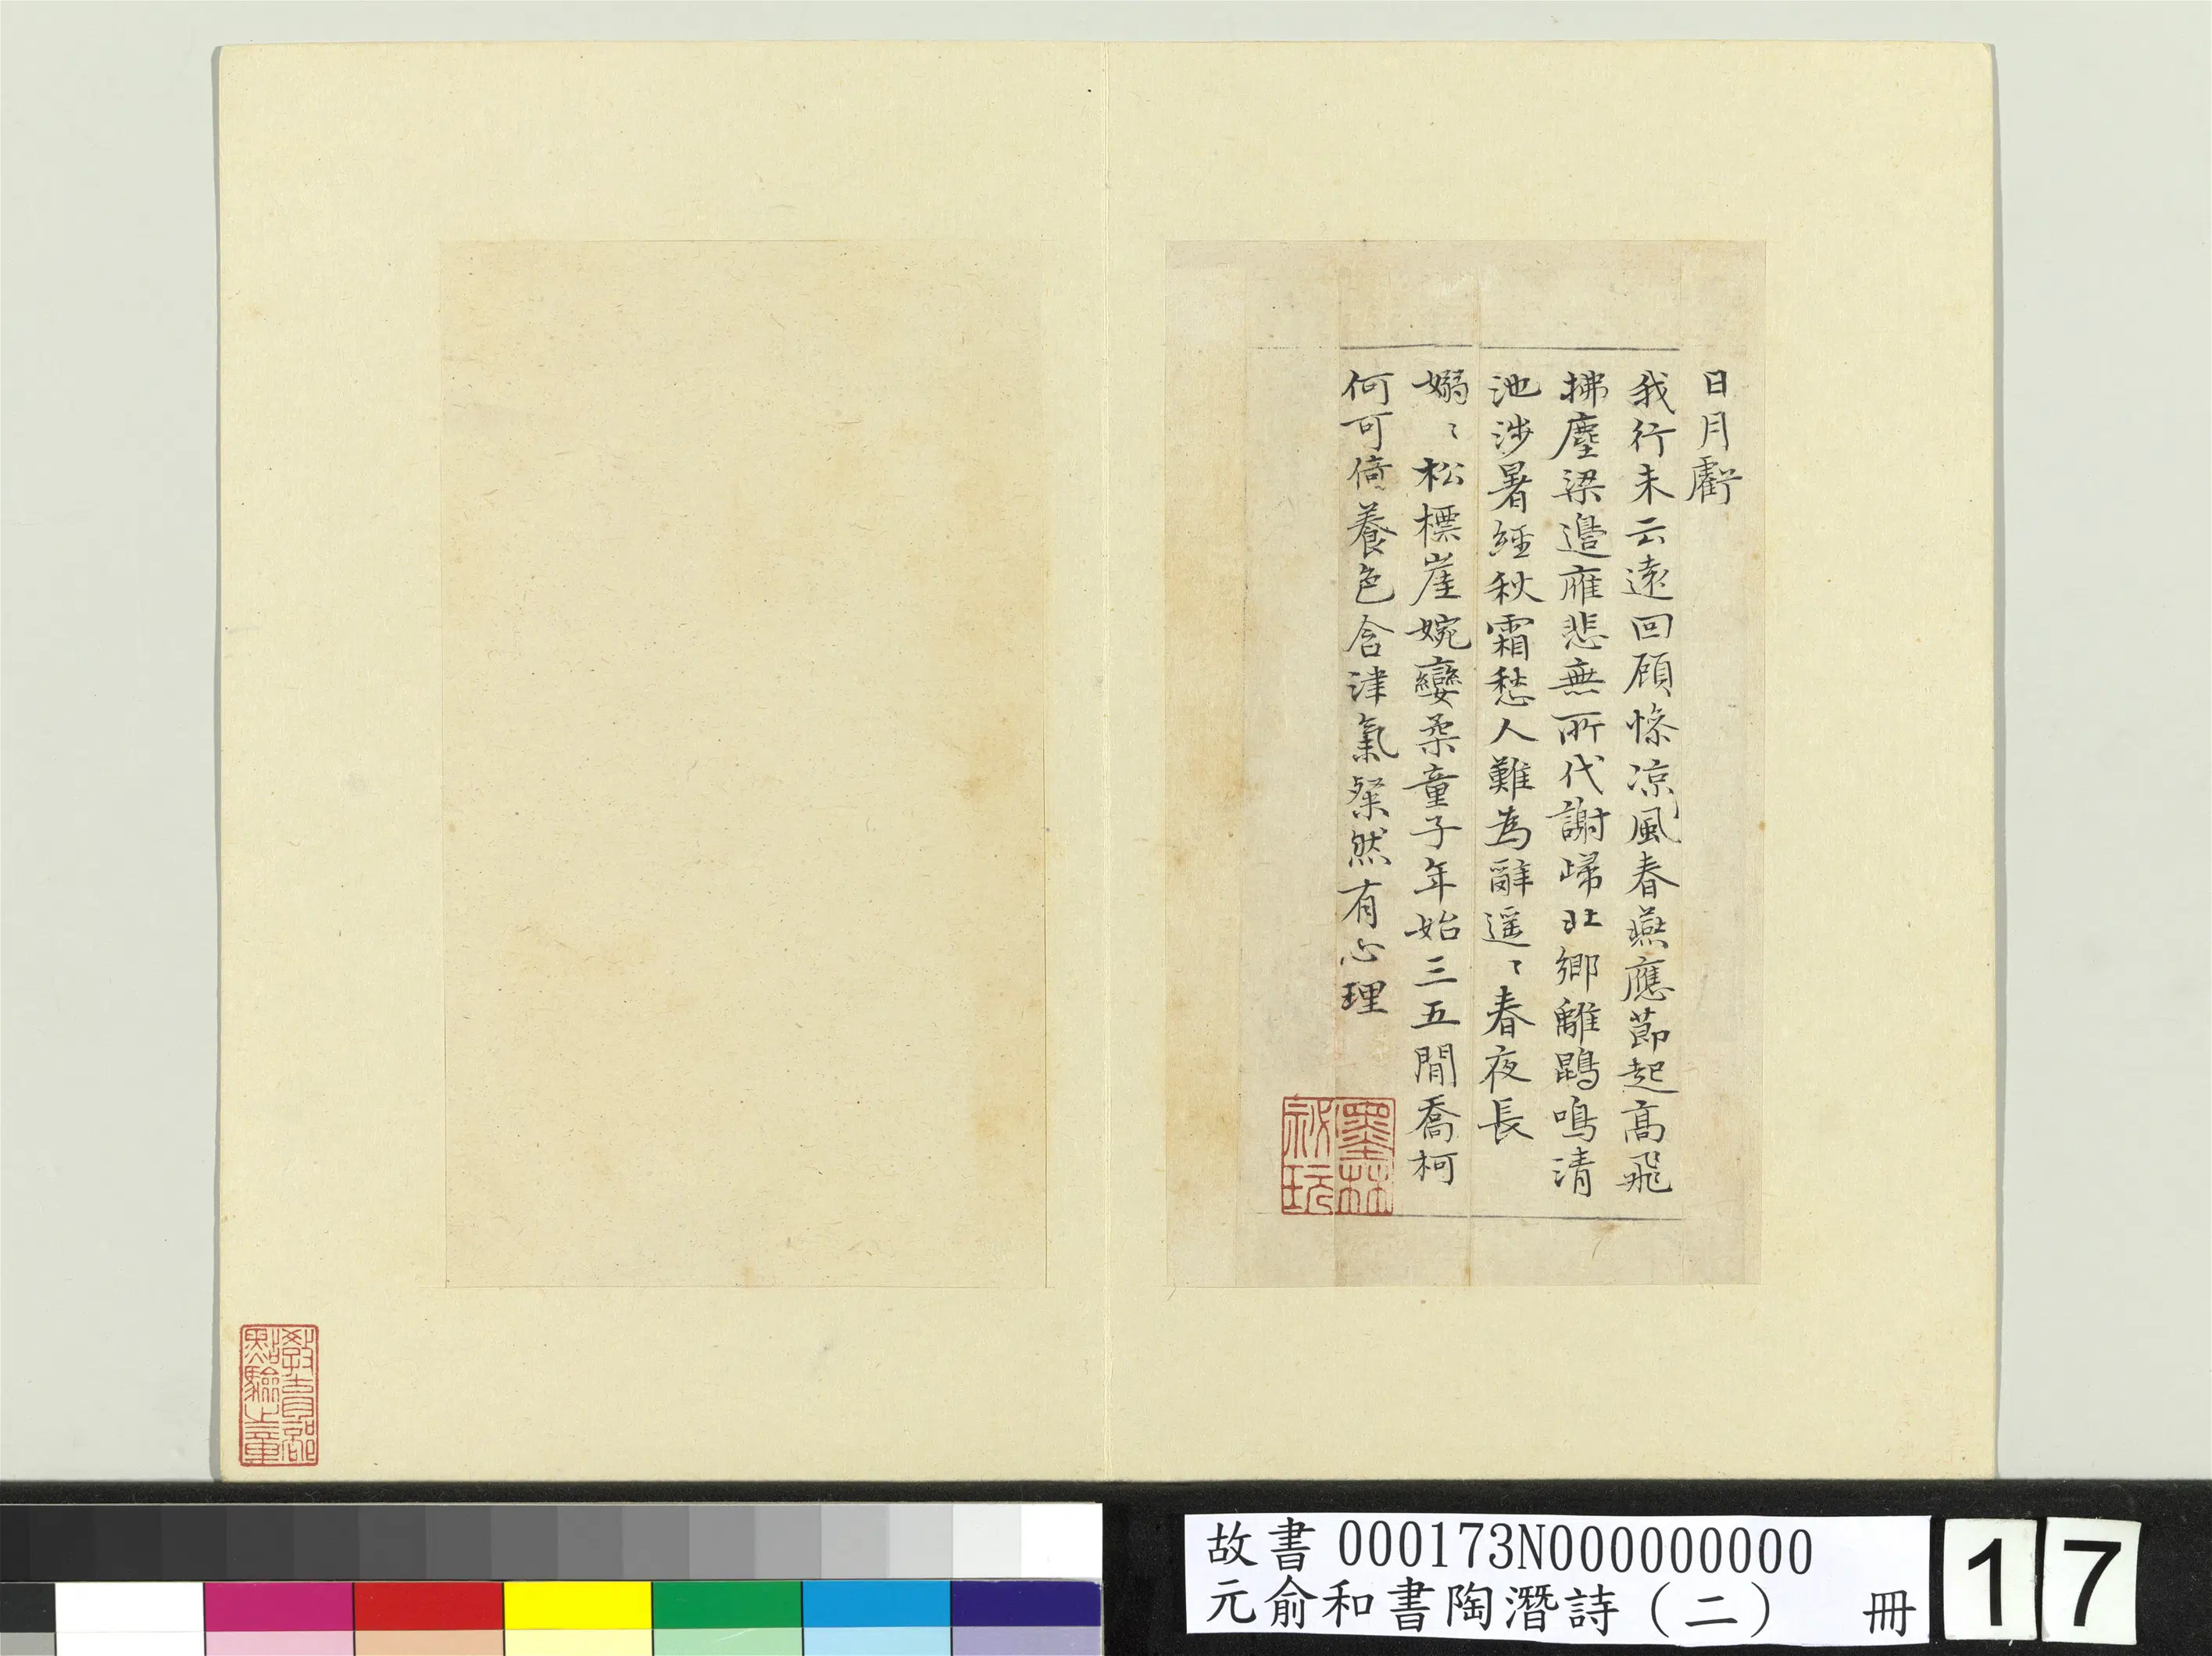 日月虧
我行未云遠回顧慘凉風春燕應節起高飛
拂塵梁邉雁悲無所代謝歸北鄉離鵾鳴清
池涉暑經秋霜愁人難為辭遥〻春夜長
嫋〻松標崖婉孌柔童子年始三五間喬柯
何可倚養色含津氣粲然有心理
墨林
祕玩
教育部
點驗之章
故書 000173N000000000
元俞和書陶潛詩（二） 冊
17